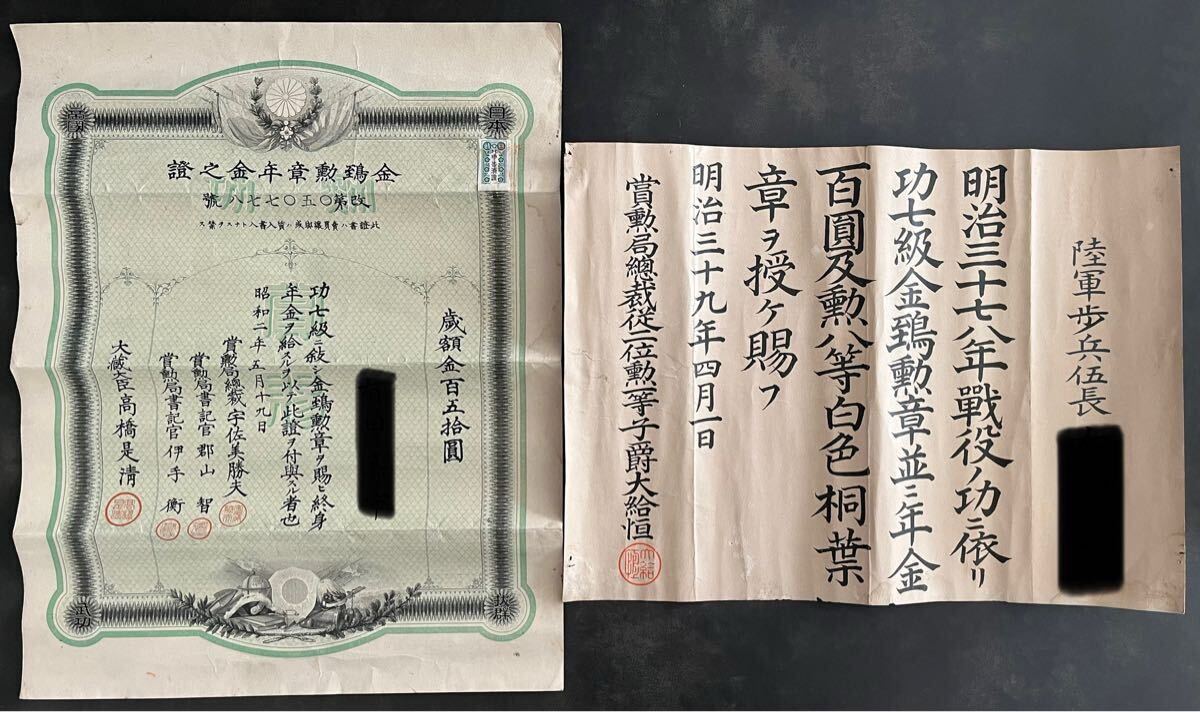 日本
帝國
金鵄勲章年金之證
改第〇五〇七七八號
此證書ハ賣買讓與或ハ質入書入トナスヲ禁ス
歳額金百五拾圓
功七級ニ敍シ金鵄勲章ヲ賜ヒ終身
年金ヲ給スルヲ以テ此證ヲ付與スル者也
昭和二年五月十九日
賞勲局總裁宇佐美勝夫
賞勲局書記官郡山智
賞勲局書記官伊手衡
大藏大臣高橋是清
陸軍歩兵伍長
明治三十七八年戰役ノ功ニ依リ
功七級金鵄勲章並ニ年金
百圓及勲八等白色桐葉
章ヲ授ケ賜フ
明治三十九年四月一日
賞勲局總裁從二位勲一等子爵大給恒